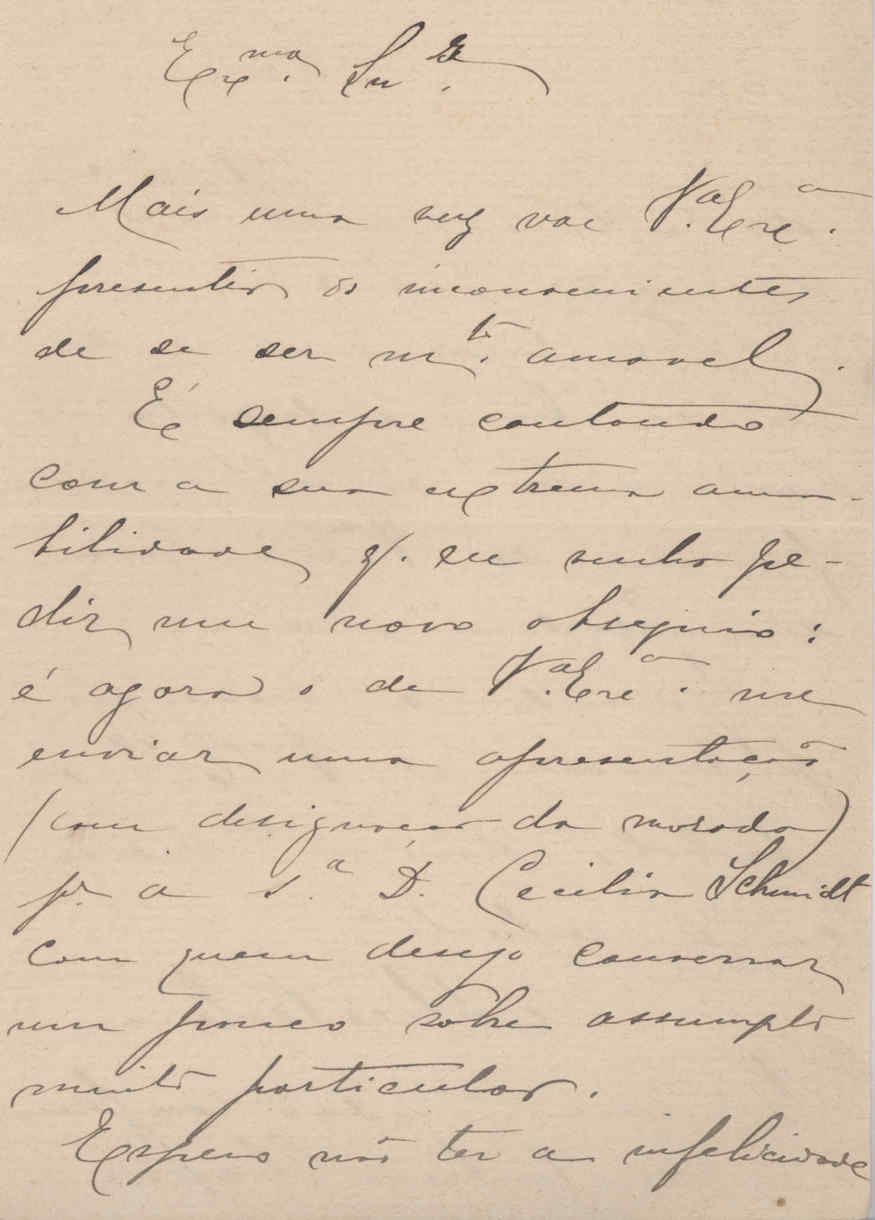 Exma. Snra.
Mais uma vez vae V.aExa.
presentir os inconvenientes
de se ser mto. amavel.
É sempre contando
com a sua extrema ama-
bilidade, q. eu venho pe-
dir um novo obsequio:
é agora o de V.aExa. me
enviar uma apresentação
(com designação da morada)
pr. a S.a D. Cecilia Schmidt
com quem desejo conversar
um pouco sobre assumpto
muito particular.
Espero não ter a infelicidade